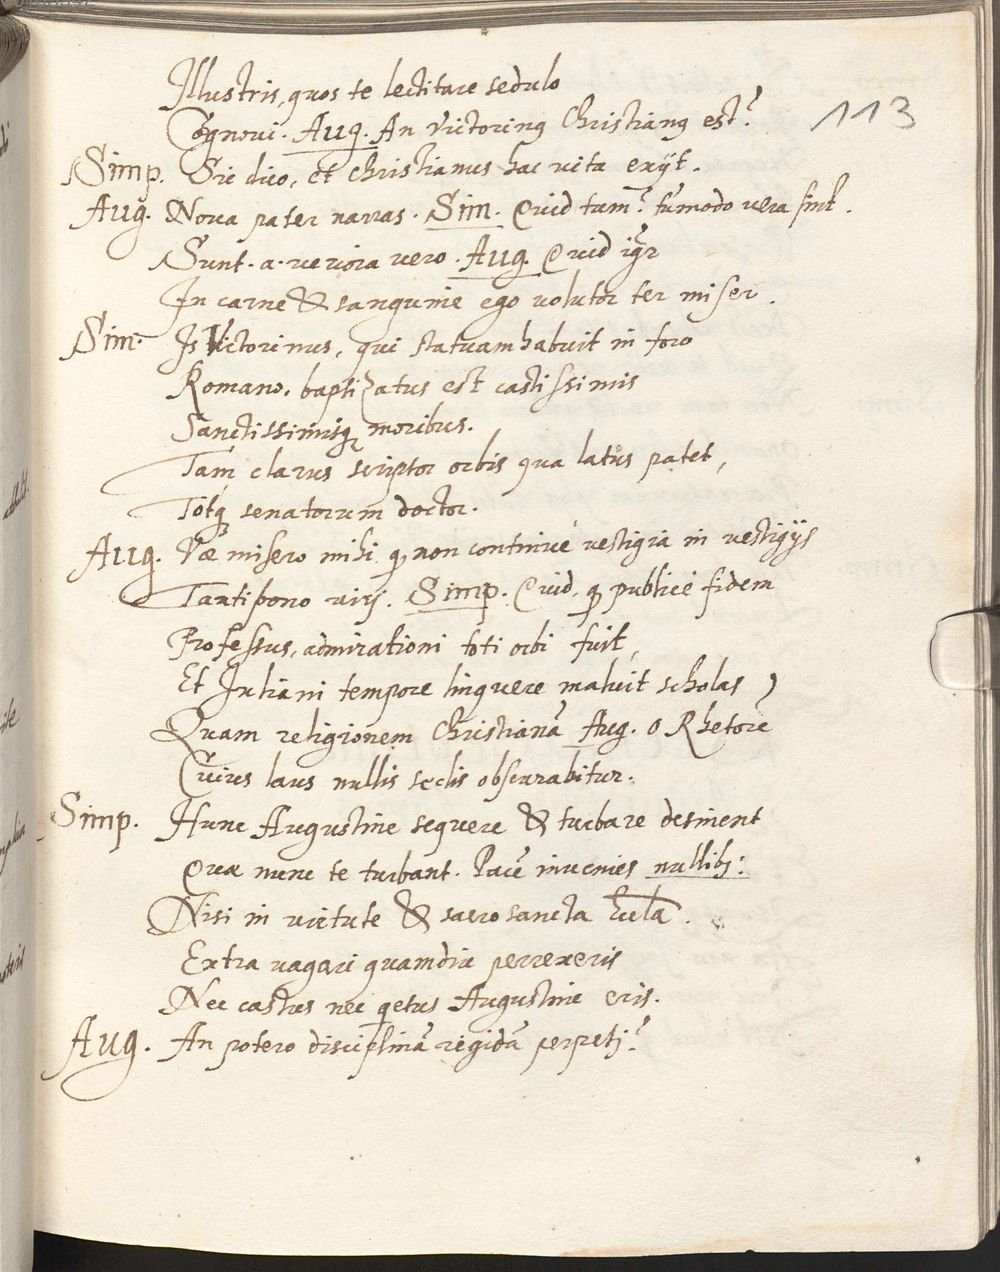 Illustris, quos te lectitare sedulo
Cognovi. Aug. An Victorinꝰ Christianꝰ est?
113
Simp. Sic dico, et christianus hac vita exijt.
Aug. Nova pater narras. Sim. Quid tam? tūmodo vera sint.
Sunt. a. veriora vero. Aug. Quid igr̄
In carne & sanguine ego volutor ter miser.
Sim. Is Victorinus, qui statuam habuit in foro
Romano, baptizatus est castissimis
Sanctissimisq; moribus.
Tam clarus scriptor orbis qua latus patet,
Totq; senatorum doctor.
Aug. Væ misero mihi q; non continue vestigia in vestigijs
Tanti pono viri. Simp. Quid, q; publice fidem
Professus, admirationi toti orbi fuit,
Et Juliani tempore linquere maluit scholas,
Quam religionem Christianā Aug. O Rhetorē
Cuius laus nullis seclis obscurabitur.
Simp. Hunc Augustine sequere & turbare desinent
Quæ nunc te turbant. Pacē invenies nullibi:
Nisi in virtute & sacrosancta
Extra vagari quamdiu perrexeris
Nec castus nec qetus Augustine eris.
Aug. An potero disciplinā regidā perpeti?